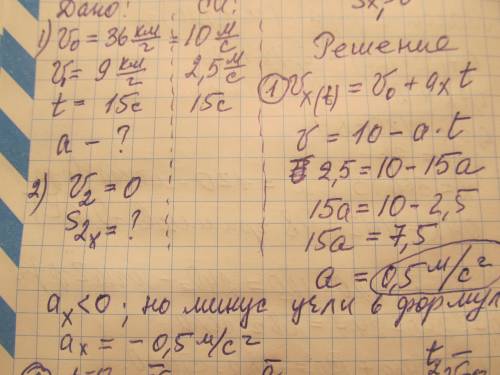 Дано: СИ:
1) V₀ = 36 км/г = 10 м/с
V₁ = 9 км/г 2,5 м/с
t = 15с 15с
a - ?
2) V₂ = 0
S₂ₓ = ?
Решение
① Vₓ(t) = V₀ + aₓ t
V = 10 - a · t
2,5 = 10 - 15a
15a = 10 - 2,5
15a = 7,5
a = 0,5 м/с²
aₓ < 0 ; но минус учли в формул
aₓ = - 0,5 м/с²